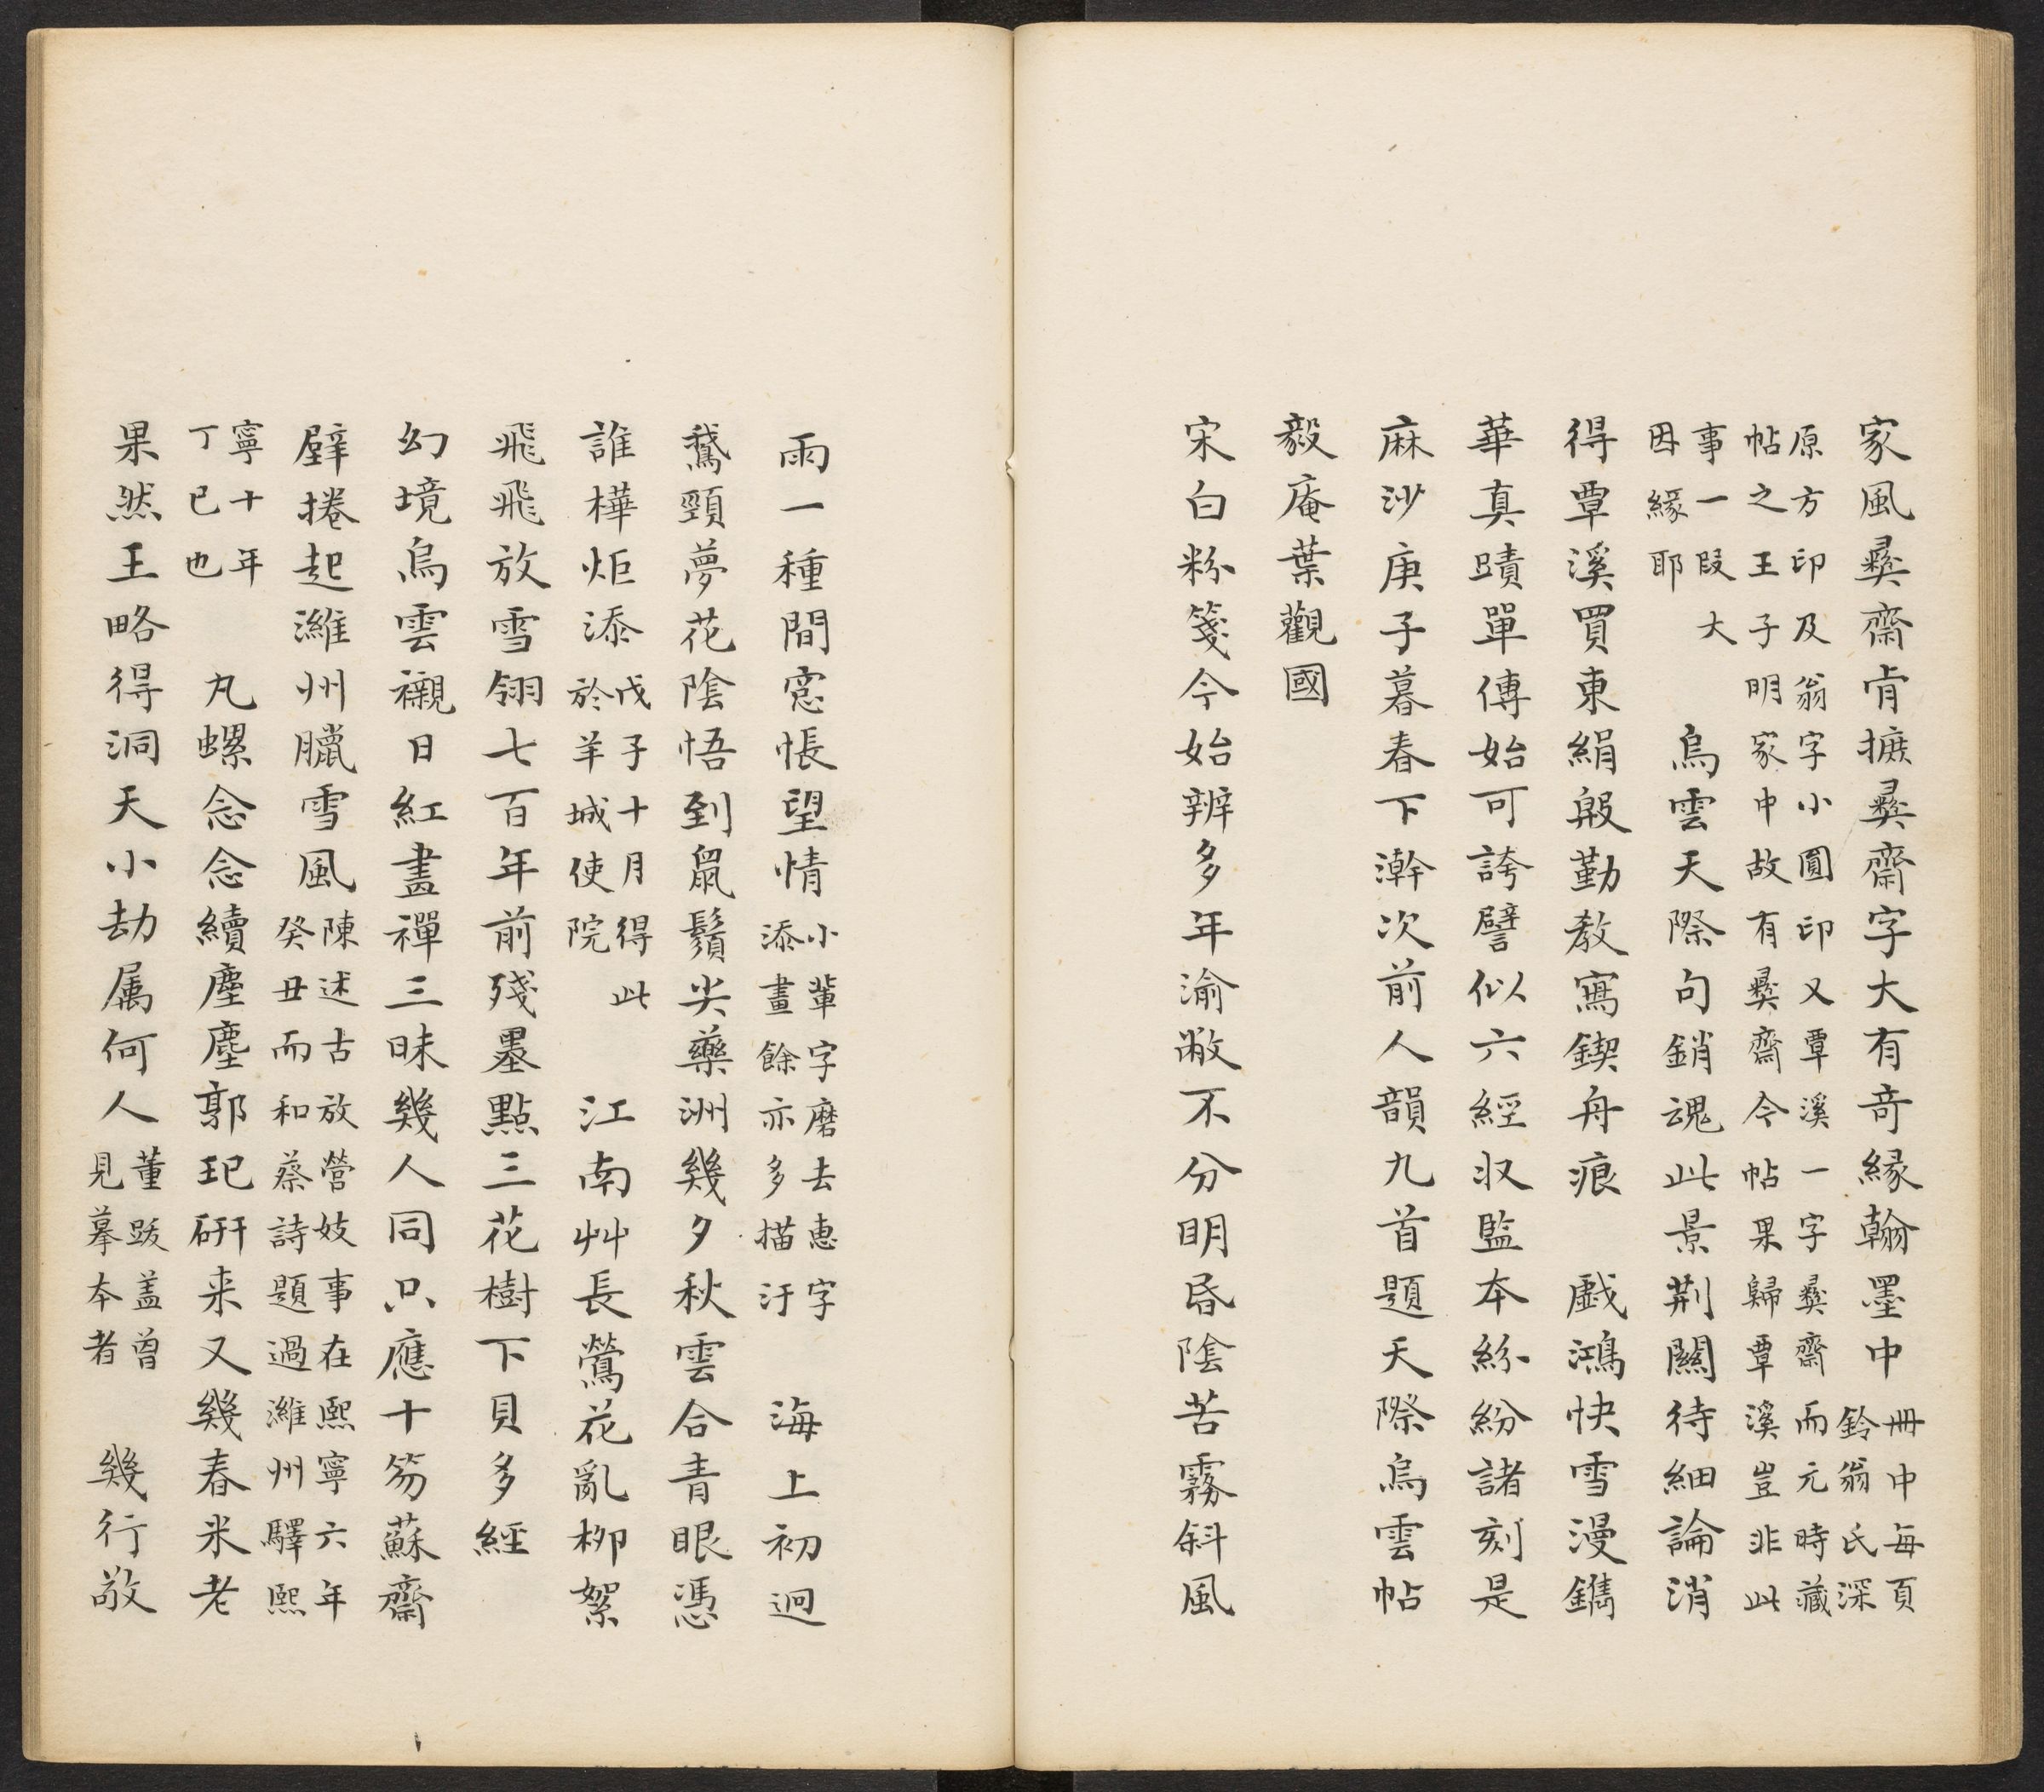 家風彝齋肯摭彝齋字大有奇緣翰墨中
冊中每頁
鈐翁氏深
原方印及翁字小圓印又覃溪一字彝齋而元時藏
帖之王子明家中故有彝齋今帖果歸覃溪豈非此
事一段大
因緣耶
烏雲天際句銷魂此景荆關待細論消
得覃溪買東絹殷勤教寫鍥舟痕　戲鴻快雪漫鐫
華真蹟單傳始可誇譬似六經収監本紛紛諸刻是
麻沙庚子暮春下澣次前人韻九首題天際烏雲帖
毅庵葉觀國
宋白粉箋今始辨多年渝敝不分明昏陰苦霧斜風
雨一種間窓悵望情
小輩字磨去惠字
添畫餘亦多描汙
海上初迴
鵞頸夢花陰悟到鼠鬚尖藥洲幾夕秋雲合青眼憑
誰樺炬添
戊子十月得此
於羊城使院
江南艸長鶯花亂柳絮
飛飛放雪翎七百年前殘墨點三花樹下貝多經
幻境烏雲襯日紅畫禪三昧幾人同只應十笏蘇齋
壁捲起濰州臘雪風
陳述古放營妓事在熙寧六年
癸丑而和蔡詩題過濰州驛熙
寧十年
丁巳也
丸螺念念續塵塵郭玘硏来又幾春米老
果然王略得洞天小劫属何人
董跋盖曾
見摹本者
幾行敬